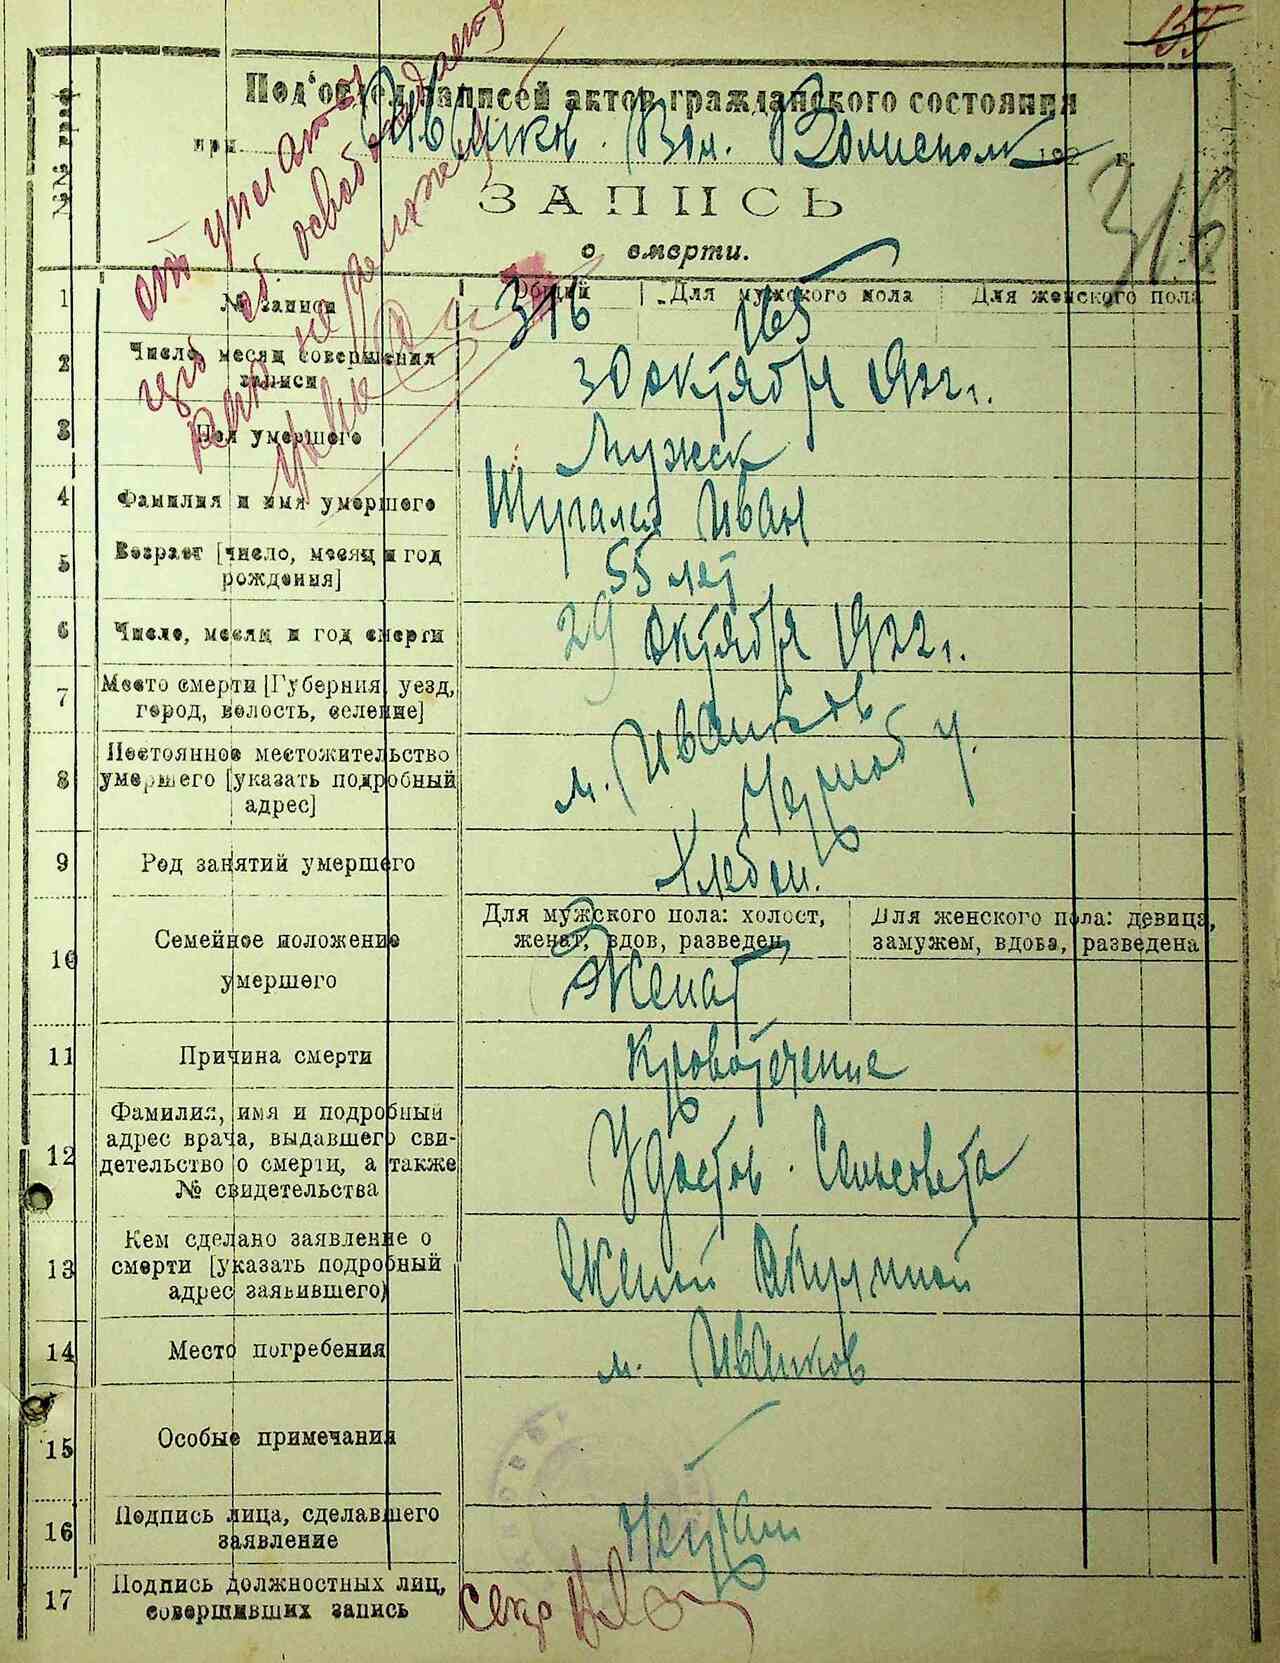 155
Под'отдел записей актов гражданского состояния
при Иванков. Вол. Волисполк 192 г.
ЗАПИСЬ
о смерти.
316
1 № записи Общий Для мужского пола Для женского пола
316 165
2 Число, месяц совершения записи 30 октября 1922 г.
3 Пол умершего Мужск
4 Фамилия и имя умершего Иван
5 Возраст [число, месяц и год рождения] 55 лет
6 Число, месяц и год смерти 29 октября 1922 г.
7 Место смерти [Губерния, уезд, город, волость, селение]
8 Постоянное местожительство умершего [указать подробный адрес] м. Иванков Черноб у.
9 Род занятий умершего Хлебоп.
10 Семейное положение умершего Для мужского пола: холост, женат, вдов, разведен Для женского пола: девица, замужем, вдова, разведена
Женат
11 Причина смерти Кровотечение
12 Фамилия, имя и подробный адрес врача, выдавшего свидетельство о смерти, а также № свидетельства Удостов. Сельсовета
13 Кем сделано заявление о смерти [указать подробный адрес заявившего) Женой Акулиной
14 Место погребения м. Иванков
15 Особые примечания
16 Подпись лица, сделавшего заявление Неграм
17 Подпись должностных лиц, совершивших запись секр